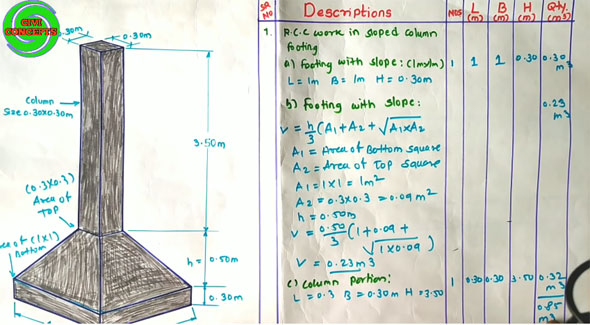 CIVIL
CONCEPTS
0.30m
0.30m
Column
Size 0.30x0.30m
3.50m
(0.3x0.3)
Area of
Top
Area of (1x1)
Bottom
h = 0.50m
0.30m
SR NO
Descriptions
NOS
L (m)
B (m)
H (m)
Qty. (m3)
1.
R.C.C work in sloped column
footing
a) footing with slope: (1mx1m) 1 1 1 0.30 0.30 m3
L = 1m B = 1m H = 0.30m
b) footing with slope: 0.23 m3
V = h/3 (A1 + A2 + √A1xA2
A1 = Area of Bottom square
A2 = Area of Top square
A1 = 1x1 = 1m2
A2 = 0.3x0.3 = 0.09 m2
h = 0.50m
V = 0.50/3 (1+0.09 + √1x0.09)
V = 0.23m3
c) Column portion: 1 0.30 0.30 3.50 0.32 m3
L = 0.3 B = 0.30m H = 3.50
0.85 m3